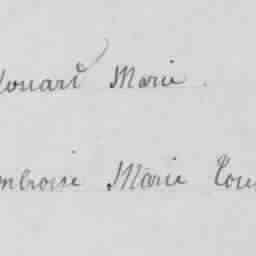 douard Marie
mbroise Marie Lou